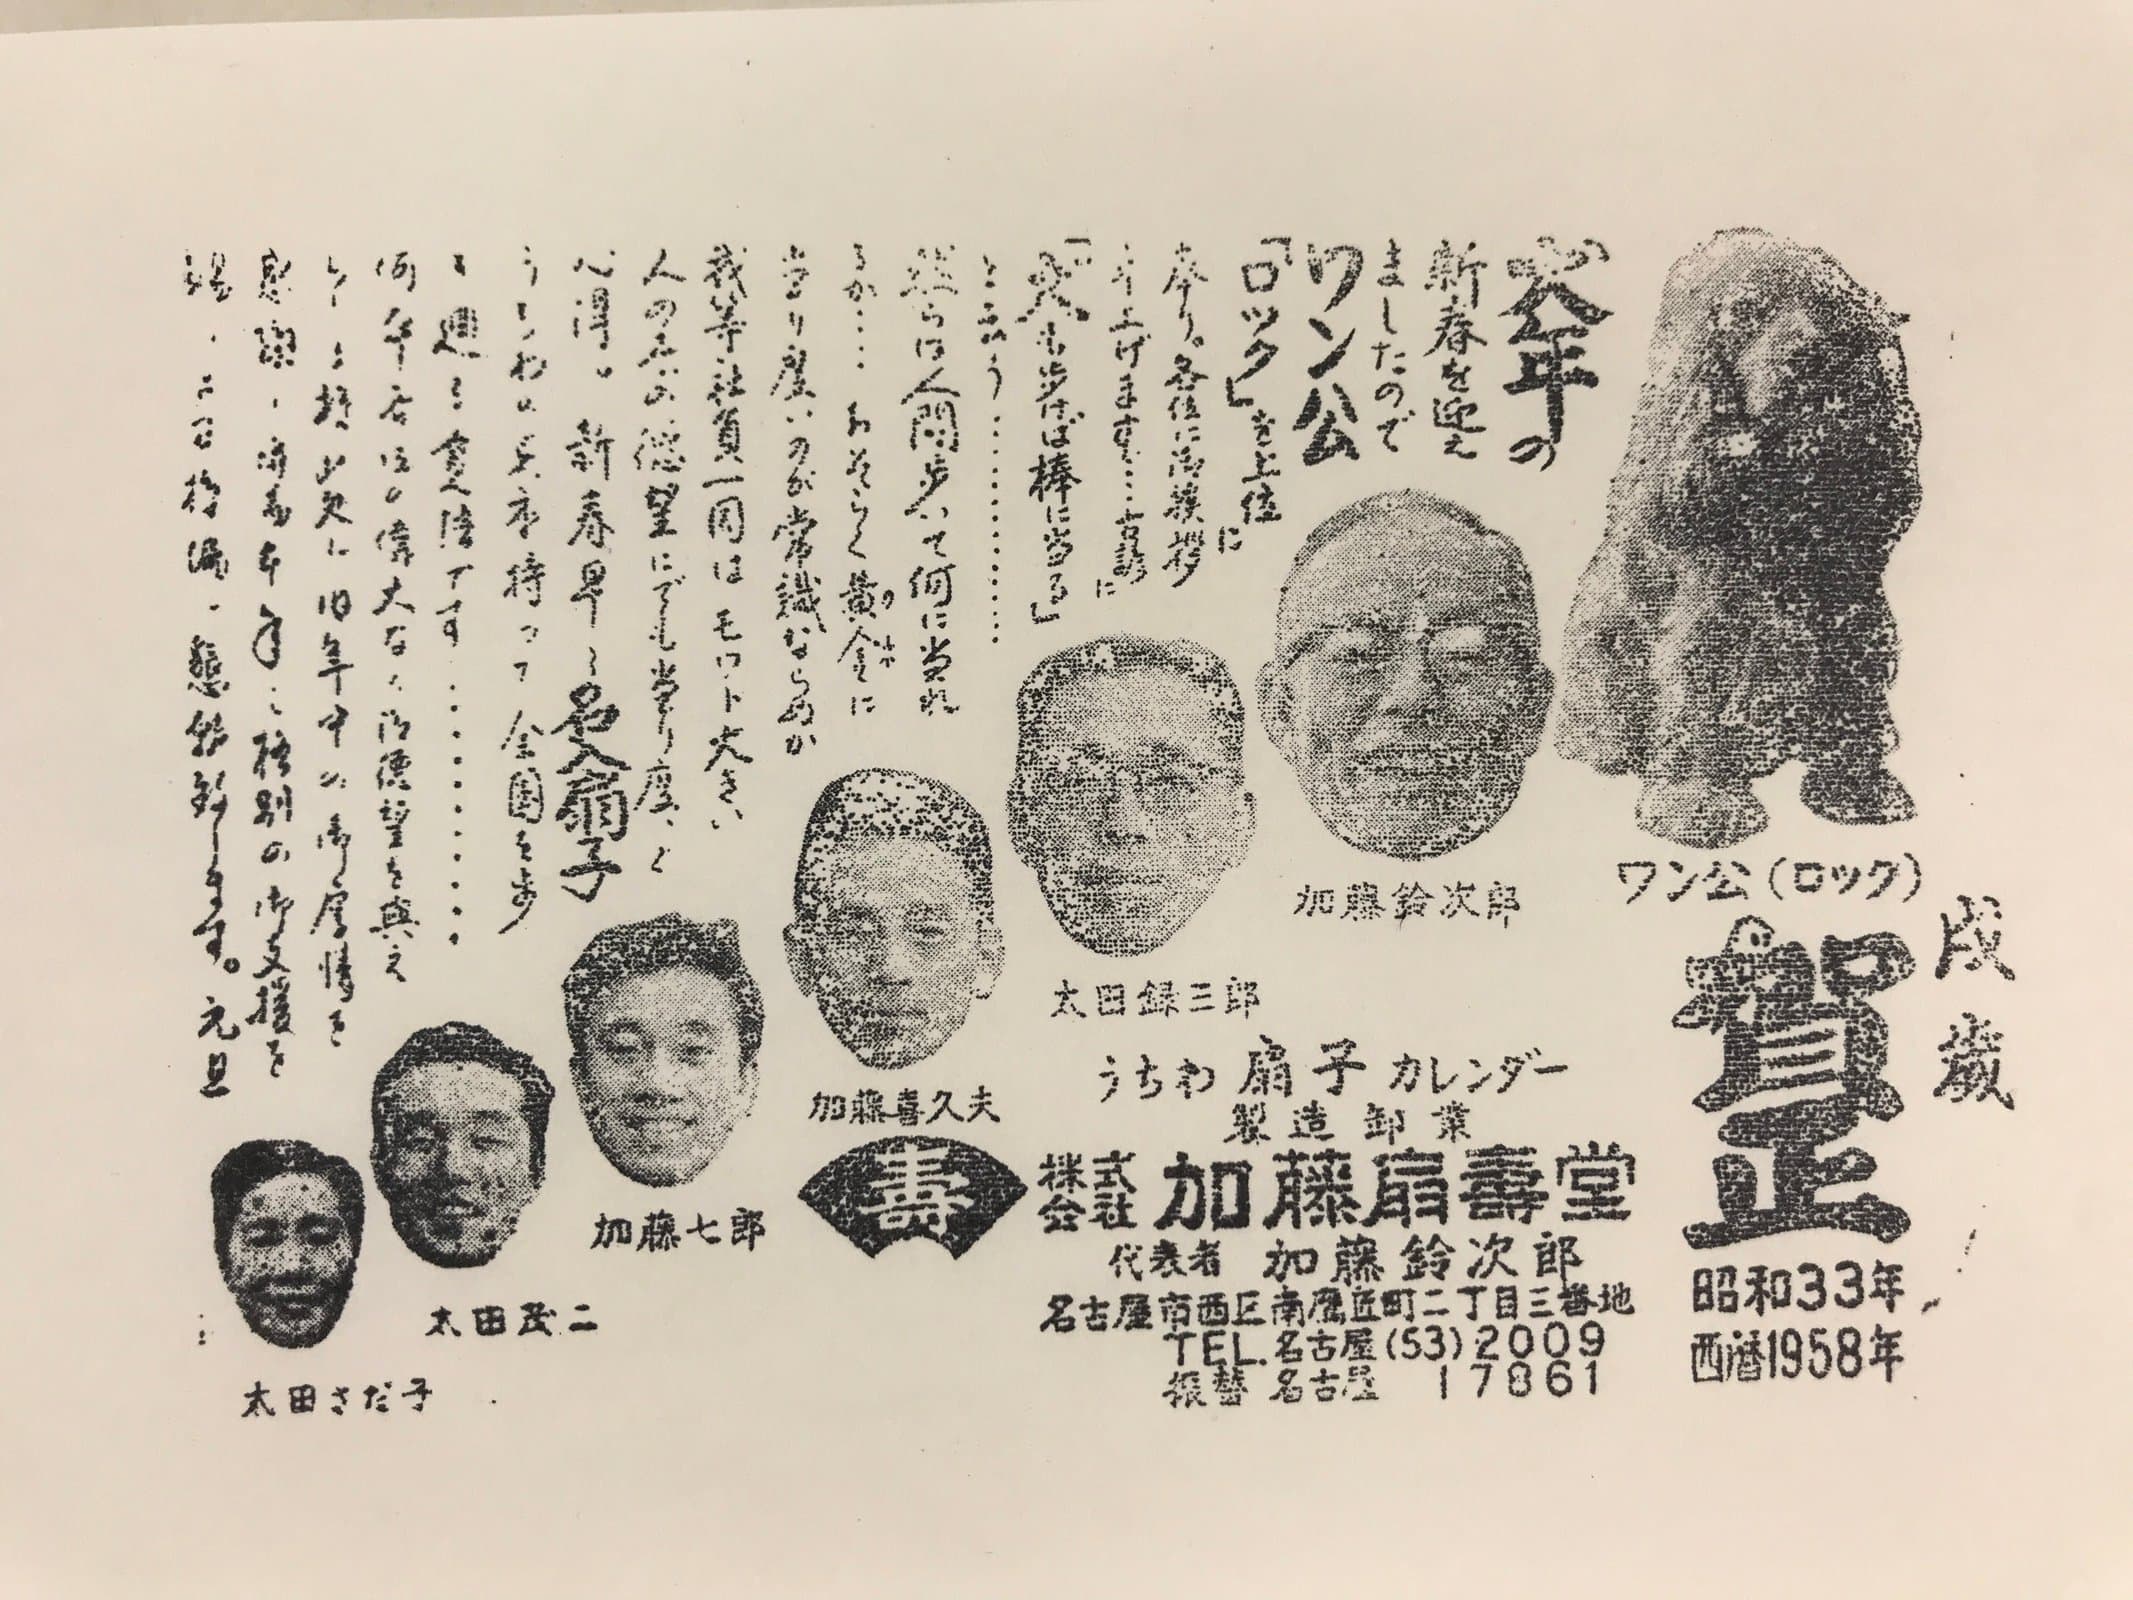 戌歳
賀正
昭和33年
西暦1958年
ワン公(ロック)
犬年の
新春を迎え
ましたので
ワン公
「ロック」を上位に
奉り。各位に御挨拶
申上げます…古諺に
「犬も歩けば棒に当る」
と云う…………
然らば人間歩いて何に当れ
るか…おそらく黄金に
当り度いのが常識ならめが
我等社員一同はモット大きい
人の
徳望にでも当り度いと
心得
新春早々名入扇子
うちわの見本持って全国を歩
何卒各位の偉大なる御徳望を与え
旧年中の御厚情を
感謝し
本年も特別の御支援を
賜
元旦
加藤鈴次郎
太田録三郎
加藤喜久夫
加藤七郎
太田茂二
太田さだ子
うちわ 扇子 カレンダー
製造卸業
壽
株式会社 加藤扇壽堂
代表者 加藤鈴次郎
名古屋市西区南鷹匠町二丁目三番地
TEL.名古屋(53)2009
振替 名古屋 17861